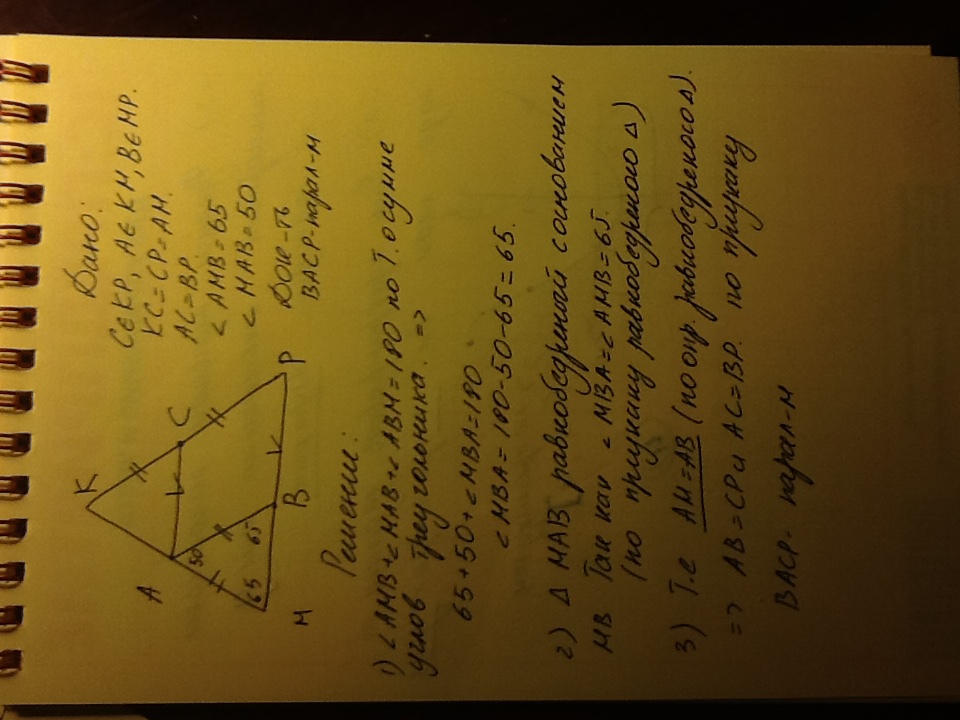 Дано:
C∈KP, A∈KM, B∈MP.
KC=CP=AM.
AC=BP.
<AMB=65
<MAB=50
Док-ть
BACP-парал-м
K
A
C
50
65
65
M
B
P
Решение:
1) <AMB+<MAB+<ABM=180 по Т. о сумме
углов треугольника. =>
65+50+<MBA=180
<MBA=180-50-65=65.
2) Δ MAB равнобедренный с основанием
MB Так как <MBA=<AMB=65.
(по признаку равнобедренного Δ)
3) Т.е AM=AB (по опр. равнобедреного Δ).
=> AB=CP и AC=BP. по признаку
BACP- парал-м